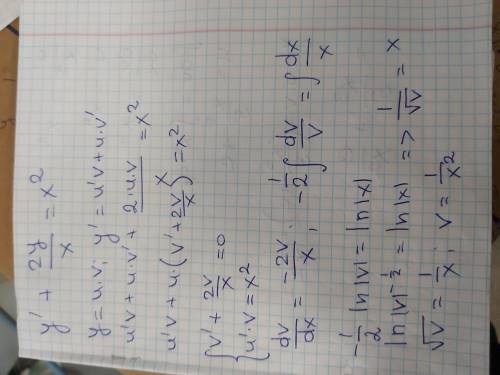 y' + 2y/x = x²
y = u·v; y' = u'v + u·v'
u'v + u·v' + 2·u·v/x = x²
u'v + u·(v' + 2v/x) = x²
{ v' + 2v/x = 0
{ u'·v = x²
dv/dx = -2v/x; -1/2 ∫ dv/v = ∫ dx/x
-1/2 ln|v| = ln|x|
ln|v|^(-1/2) = ln|x| => 1/√v = x
√v = 1/x; v = 1/x²